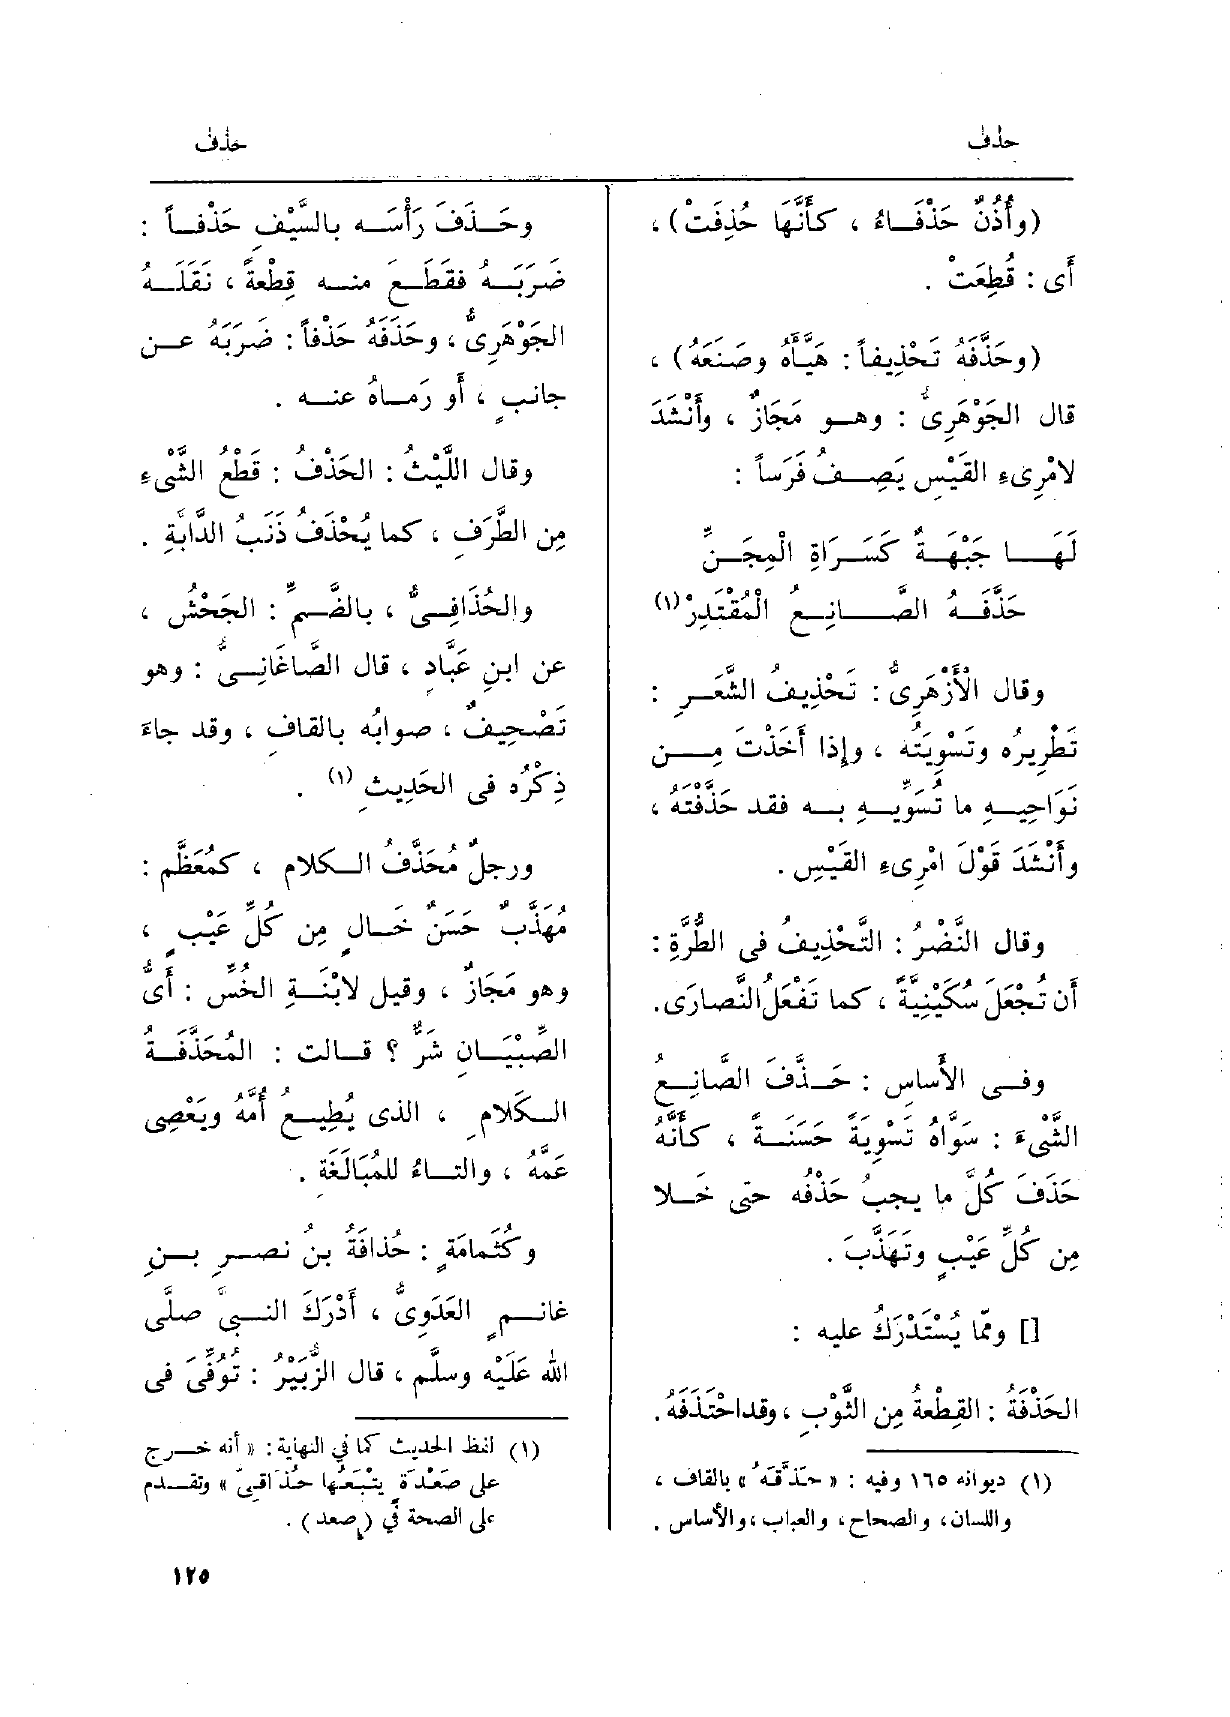 حذف
حذف
(وأُذُنٌ حَذْفَـاءُ ، كأَنَّهَا حُذِفَتْ) ،
أَى : قُطِعَتْ .
(وحَذَّفَهُ تَحْذِيفاً : هَيَّأَه وصَنَعَهُ) ،
قال الجَوْهَرِىُّ : وهــو مَجَازٌ ، وأَنْشَدَ
لامْرِىءِ القَيْسِ يَصِـفُ فَرَساً :
لَهَــا جَبْهَـةٌ كَسَـرَاةِ الْمِجَـنِّ
حَذَّفَـهُ الصَّـــانِـعُ الْمُقْتَدِرْ(١)
وقال الأَزْهَرِىُّ : تَحْذِيفُ الشَّعَـرِ :
تَطْرِيرُه وتَسْوِيَتُه ، وإِذا أَخَذْتَ مِــن
نَوَاحِيـهِ ما تُسَوِّيـهِ بـه فقد حَذَّفْتَهُ ،
وأَنْشَدَ قَوْلَ امْرِىءِ القَيْسِ .
وقال النَّضْرُ : التَّحْذِيفُ فى الطُّرَّةِ :
أَن تُجْعَلَ سُكَيْنِيَّةً ، كما تَفْعَلُ النَّصارَى .
وفـى الأَساسِ : حَـذَّفَ الصَّانِـعُ
الشَّىْءَ : سَوَّاهُ تَسْوِيَةً حَسَنَـةً ، كأَنَّهُ
حَذَفَ كُلَّ ما يجبُ حَذْفُه حتى خَـلا
مِن كُلِّ عَيْبٍ وتَهَذَّبَ .
[] وممّا يُسْتَدْرَكُ عليه :
الحَذْفَةُ : القِطْعةُ مِن الثَّوْبِ ، وقد احْتَذَفَهُ .
(١) ديوانه ١٦٥ وفيه : « حَذَّقَهُ » بالقاف ،
واللسان، والصحاح، والعباب، والأساس .
وحَـذَفَ رَأْسَـه بالسَّيْفِ حَذْفـاً :
ضَرَبَـهُ فقَطَـعَ منـه قِطْعةً ، نَقَلَـهُ
الجَوْهَرِىُّ ، وحَذَفَهُ حَذْفاً : ضَرَبَهُ عـن
جانبٍ ، أَو رَمـاهُ عنـه .
وقال اللَّيْثُ : الحَذْفُ : قَطْعُ الشَّىْءِ
مِن الطَّرَفِ ، كما يُحْذَفُ ذَنَبُ الدَّابَّةِ .
والحُذَافِـىُّ ، بالضَّـمِّ : الجَحْشُ ،
عن ابنِ عَبَّادٍ ، قال الصَّاغَانِـىُّ : وهو
تَصْحِيفٌ ، صوابُه بالقاف ، وقد جاءَ
ذِكْرُه فى الحَدِيثِ (١) .
ورجلٌ مُحَذَّفُ الـكلامِ ، كمُعَظَّمٍ :
مُهَذَّبٌ حَسَنٌ خَـالٍ مِن كُلِّ عَيْبٍ ،
وهو مَجَازٌ ، وقيل لابْنَـةِ الخُسِّ : أَىُّ
الصِّبْيَـانِ شَرٌّ ؟ قـالت : المُحَذَّفَـةُ
الـكَلامِ ، الذى يُطِيـعُ أُمَّهُ ويَعْصِى
عَمَّهُ ، والتـاءُ للمُبَالَغَةِ .
وكثُمامَةٍ : حُذافَةُ بنُ نصـرِ بـنِ
غانـمٍ العَدَوِىُّ ، أَدْرَكَ النـبىَّ صلَّى
الله عَلَيْه وسلَّم ، قال الزُّبَيْرُ : تُوُفِّىَ فى
(١) لفظ الحديث كما في النهاية : « أنه خـرج
على صَعْدَة يتْبَعُها حُذاقيّ » وتقـدم
على الصحة في (صعد) .
١٢٥